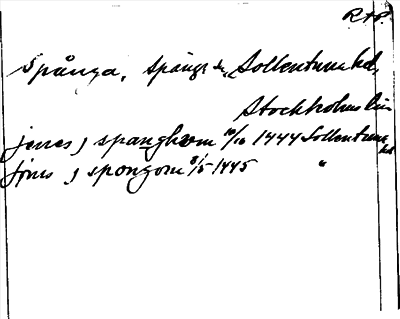 R+P.
Spånga, Spånga sn, Sollentuna hd,
Stockholms län
jenes j spanghom 10/10 1444 Sollentuna hd
jönis j spongom 8/5 1445 "